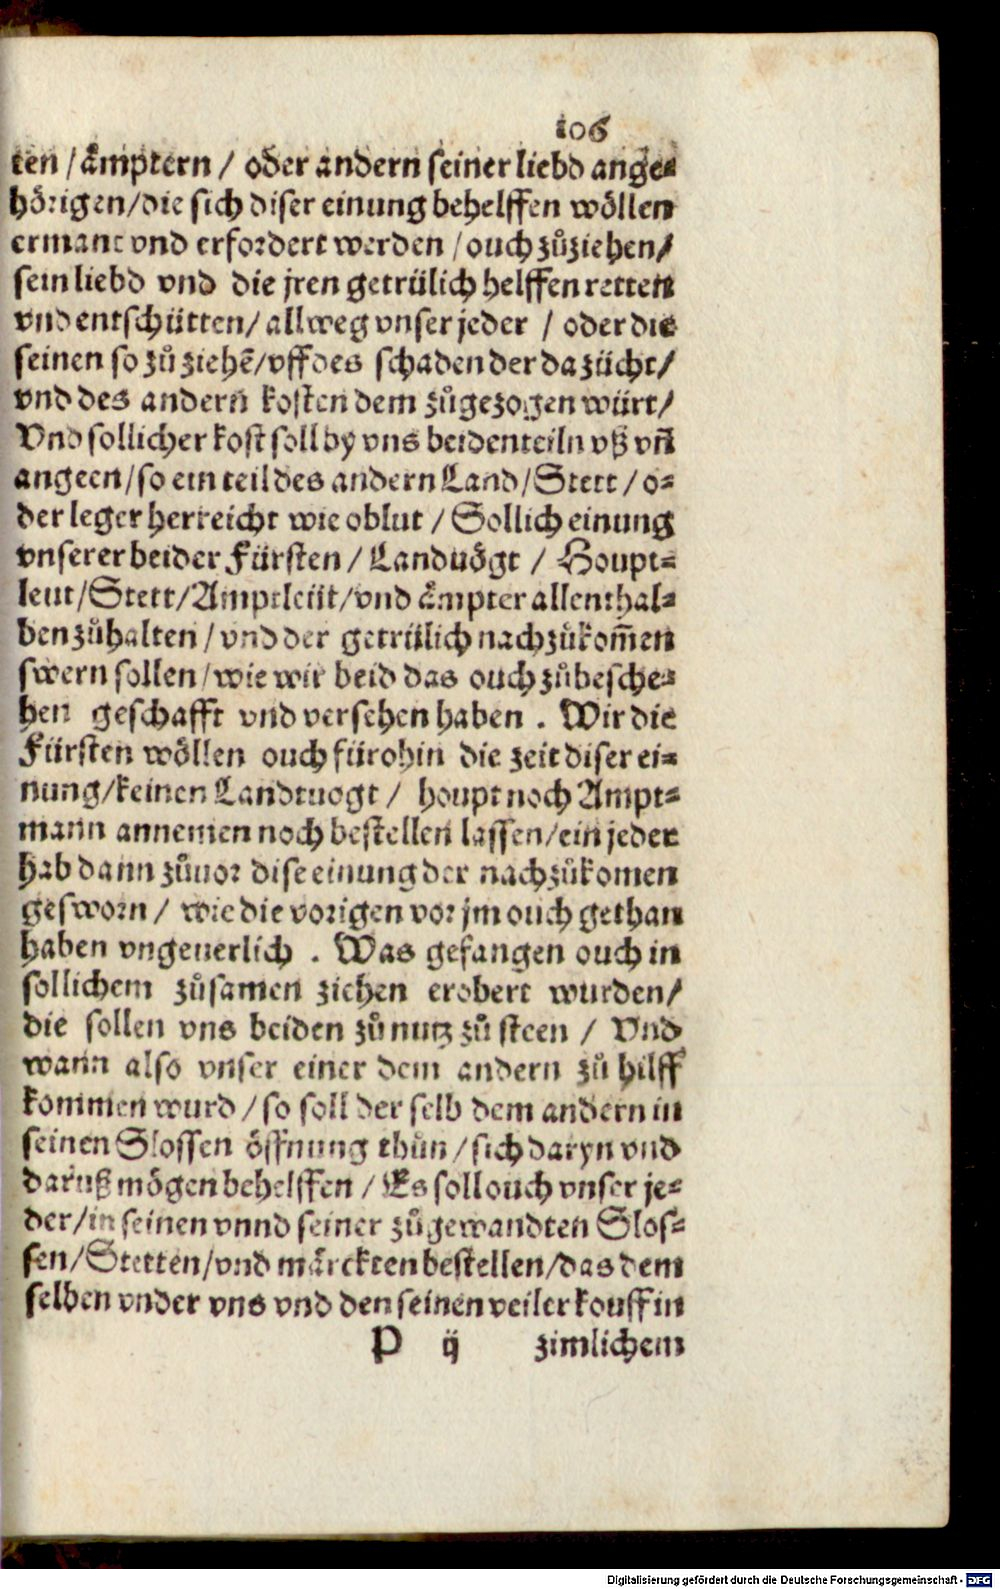 106
ten / aͤmptern / oder andern seiner liebd ange⸗
hoͤrigen/die sich diser einung behelffen woͤllen
ermant vnd erfordert werden / ouch zuͦziehen/
sein liebd vnd die jren getrülich helffen retten
vnd entschütten/ allweg vnser jeder / oder die
seinen so zuͦ ziehẽ/vff des schaden der da zücht/
vnd des andern kosten dem zuͦgezogen würt/
Vnd sollicher kost soll by vns beiden teiln vß vñ
angeen/so ein teil des andern Land/Stett / o⸗
der leger herreicht wie oblut / Sollich einung
vnserer beider Fürsten / Landuoͤgt / Houpt⸗
leut/Stett/Amptleüt/vnd aͤmpter allenthal⸗
ben zuͦhalten / vnd der getrülich nachzuͦkom̃en
swern sollen/wie wir beid das ouch zuͦbesche⸗
hen geschafft vnd versehen haben . Wir die
Fürsten woͤllen ouch fürohin die zeit diser ei⸗
nung/keinen Landtuogt / houpt noch Ampt⸗
mann annemen noch bestellen lassen/ein jeder
hab dann zuͦuor dise einung der nachzuͦkomen
gesworn / wie die vorigen vor jm ouch gethan
haben vngeuerlich . Was gefangen ouch in
sollichem zuͦsamen ziehen erobert wurden/
die sollen vns beiden zuͦ nutz zuͦ steen / Vnd
wann also vnser einer dem andern zuͦ hilff
kommen wurd / so soll der selb dem andern in
seinen Slossen oͤffnung thuͦn / sich daryn vnd
daruß moͤgen behelffen / Es soll ouch vnser je⸗
der/in seinen vnnd seiner zuͦgewandten Slos⸗
sen/Stetten/vnd maͤrckten bestellen/das dem
selben vnder vns vnd den seinen veiler kouff in
P ij zimlichem
Digitalisierung gefördert durch die Deutsche Forschungsgemeinschaft - DFG